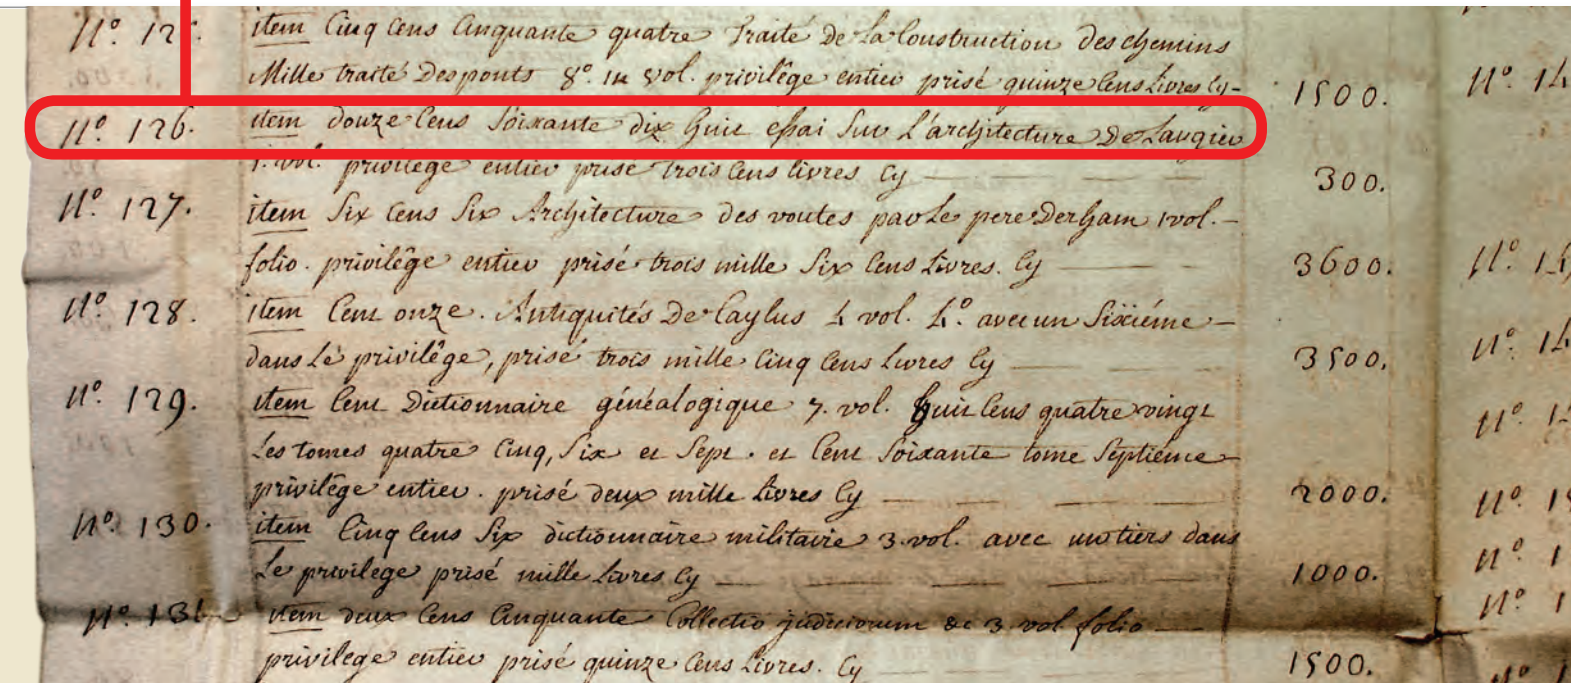 N.º 125. item Cinq cens Cinquante quatre Traité de La Construction des chemins
Mille traité des ponts 8.º in vol. privilêge entier prisé quinze Cens Livres Cy- 1500.
N.º 126. item douze Cens Soixante dix huit essai Sur L'architecture De Laugier
1. vol. privilege entier prisé trois Cens livres Cy 300.
N.º 127. item Six Cens Six Architecture des voutes par Le pere Derham 1 vol.-
folio. privilêge entier prisé trois mille Six Cens Livres. Cy 3600.
N.º 128. item Cent onze. Antiquités De Caylus 4 vol. 4.º avec un Sixiéme-
dans Le privilêge, prisé trois mille Cinq Cens Livres Cy 3500.
N.º 129. item Cent Dictionnaire généalogique 7. vol. huit Cens quatre vingt
Les tomes quatre Cinq, Six et Sept. et Cent Soixante tome Septiéme-
privilêge entier. prisé deux mille Livres Cy 2000.
N.º 130. item Cinq Cens Six dictionnaire militaire 3. vol. avec un tiers dans
Le privilege prisé mille Livres Cy 1000.
N.º 131. item deux Cens Cinquante Collectio judiciorum &c 3. vol folio
privilege entier prisé quinze Cens Livres. Cy 1500.